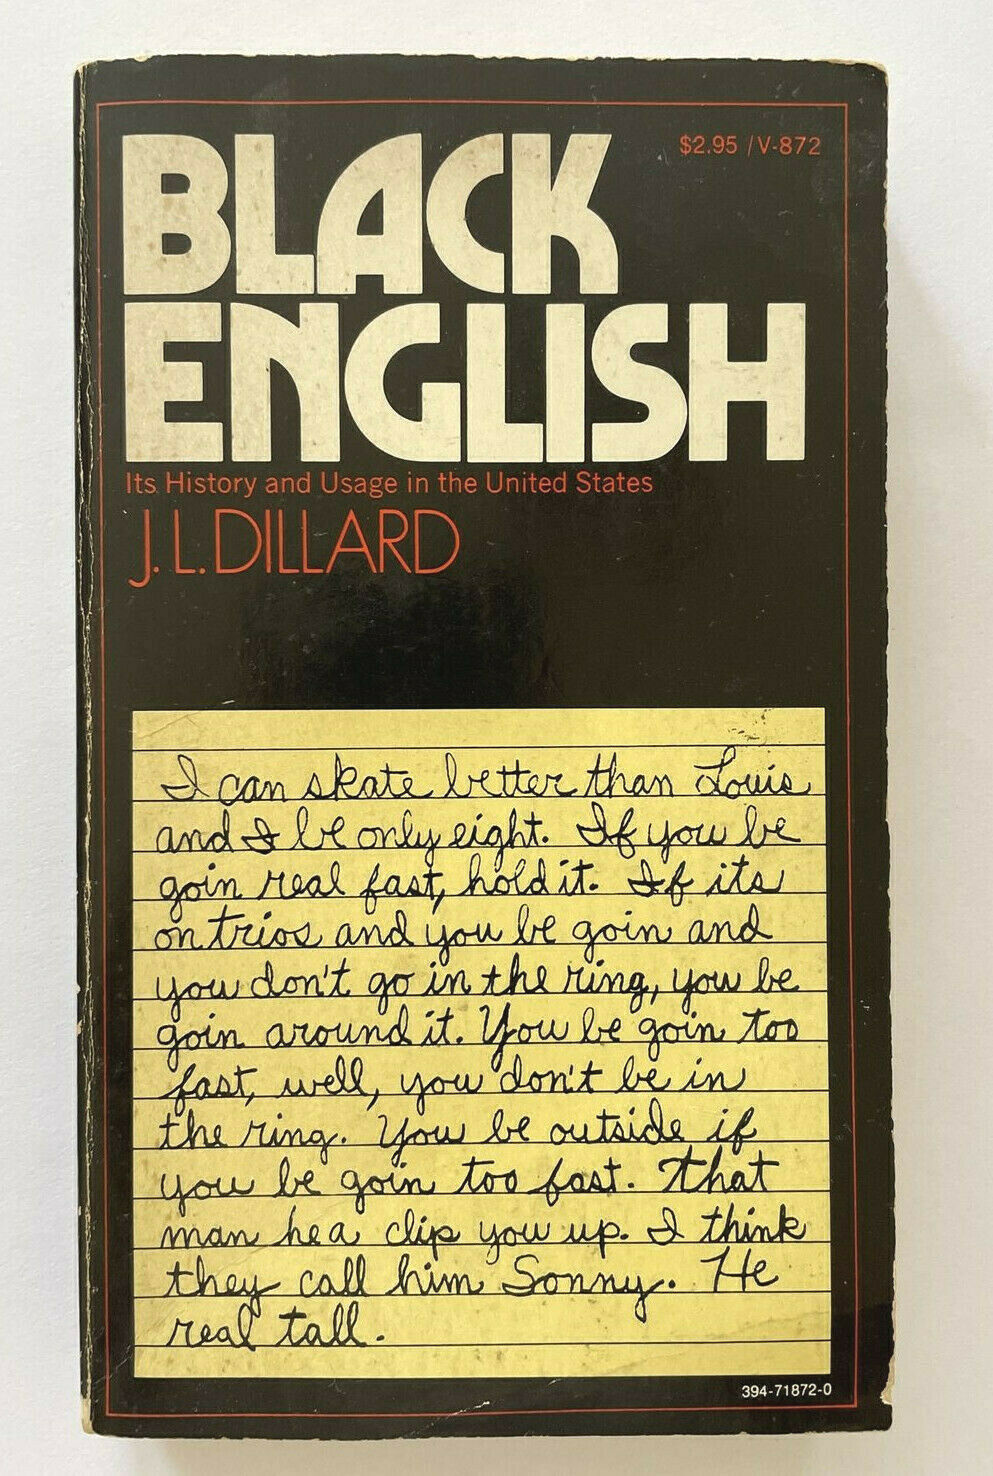 BLACK
$2.95 / V-872
ENGLISH
Its History and Usage in the United States
J.L. DILLARD
I can skate better than Louis
and I be only eight. If you be
goin real fast, hold it. If its
on trios and you be goin and
you don't go in the ring, you be
goin around it. You be goin too
fast, well, you don't be in
the ring. You be outside if
you be goin too fast. That
man he a clip you up. I think
they call him Sonny. He
real tall.
394-71872-0